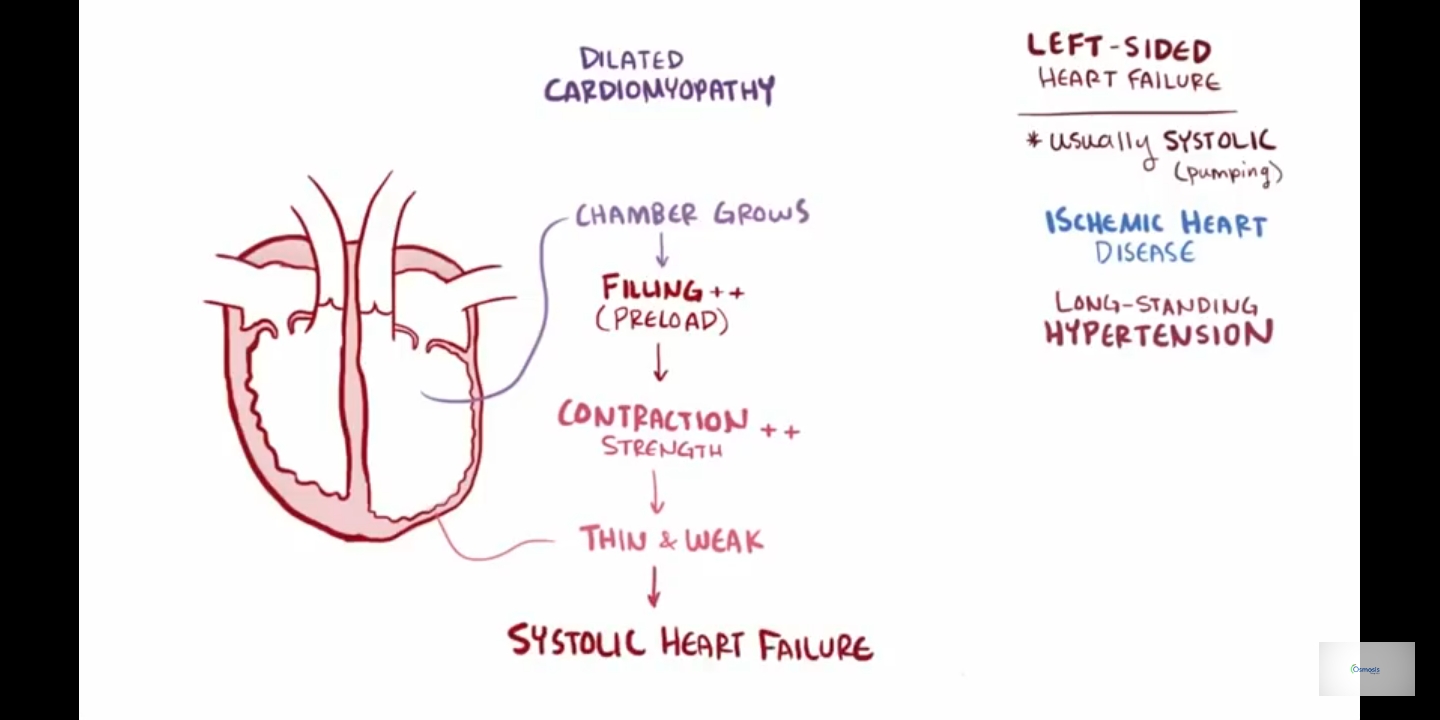 DILATED
CARDIOMYOPATHY
CHAMBER GROWS
FILLING ++
(PRELOAD)
CONTRACTION ++
STRENGTH
THIN & WEAK
SYSTOLIC HEART FAILURE
LEFT-SIDED
HEART FAILURE
* usually SYSTOLIC
(pumping)
ISCHEMIC HEART
DISEASE
LONG-STANDING
HYPERTENSION
Osmosis